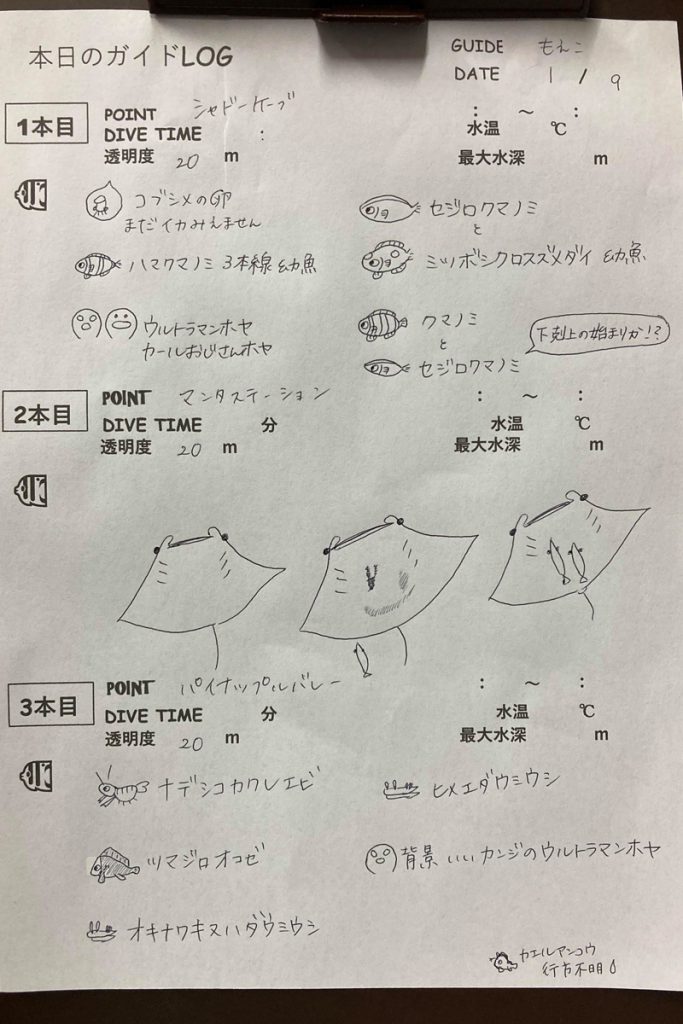 本日のガイドLOG
GUIDE もえこ
DATE 1 / 9
1本目
POINT シャドーケーブ
DIVE TIME :
: ～ :
水温 ℃
透明度 20 m
最大水深 m
コブシメの卵
まだイカみえません
セジロクマノミ
と
ミツボシクロスズメダイ 幼魚
ハマクマノミ 3本線幼魚
ウルトラマンホヤ
カールおじさんホヤ
クマノミ
と
セジロクマノミ
下剋上の始まりか!?
2本目
POINT マンタステーション
: ～ :
DIVE TIME 分
水温 ℃
透明度 20 m
最大水深 m
3本目
POINT パイナップルバレー
: ～ :
DIVE TIME 分
水温 ℃
透明度 20 m
最大水深 m
ナデシコカクレエビ
ヒメエダウミウシ
ツマジロオコゼ
背景いいカンジのウルトラマンホヤ
オキナワキヌハダウミウシ
カエルアンコウ
行方不明